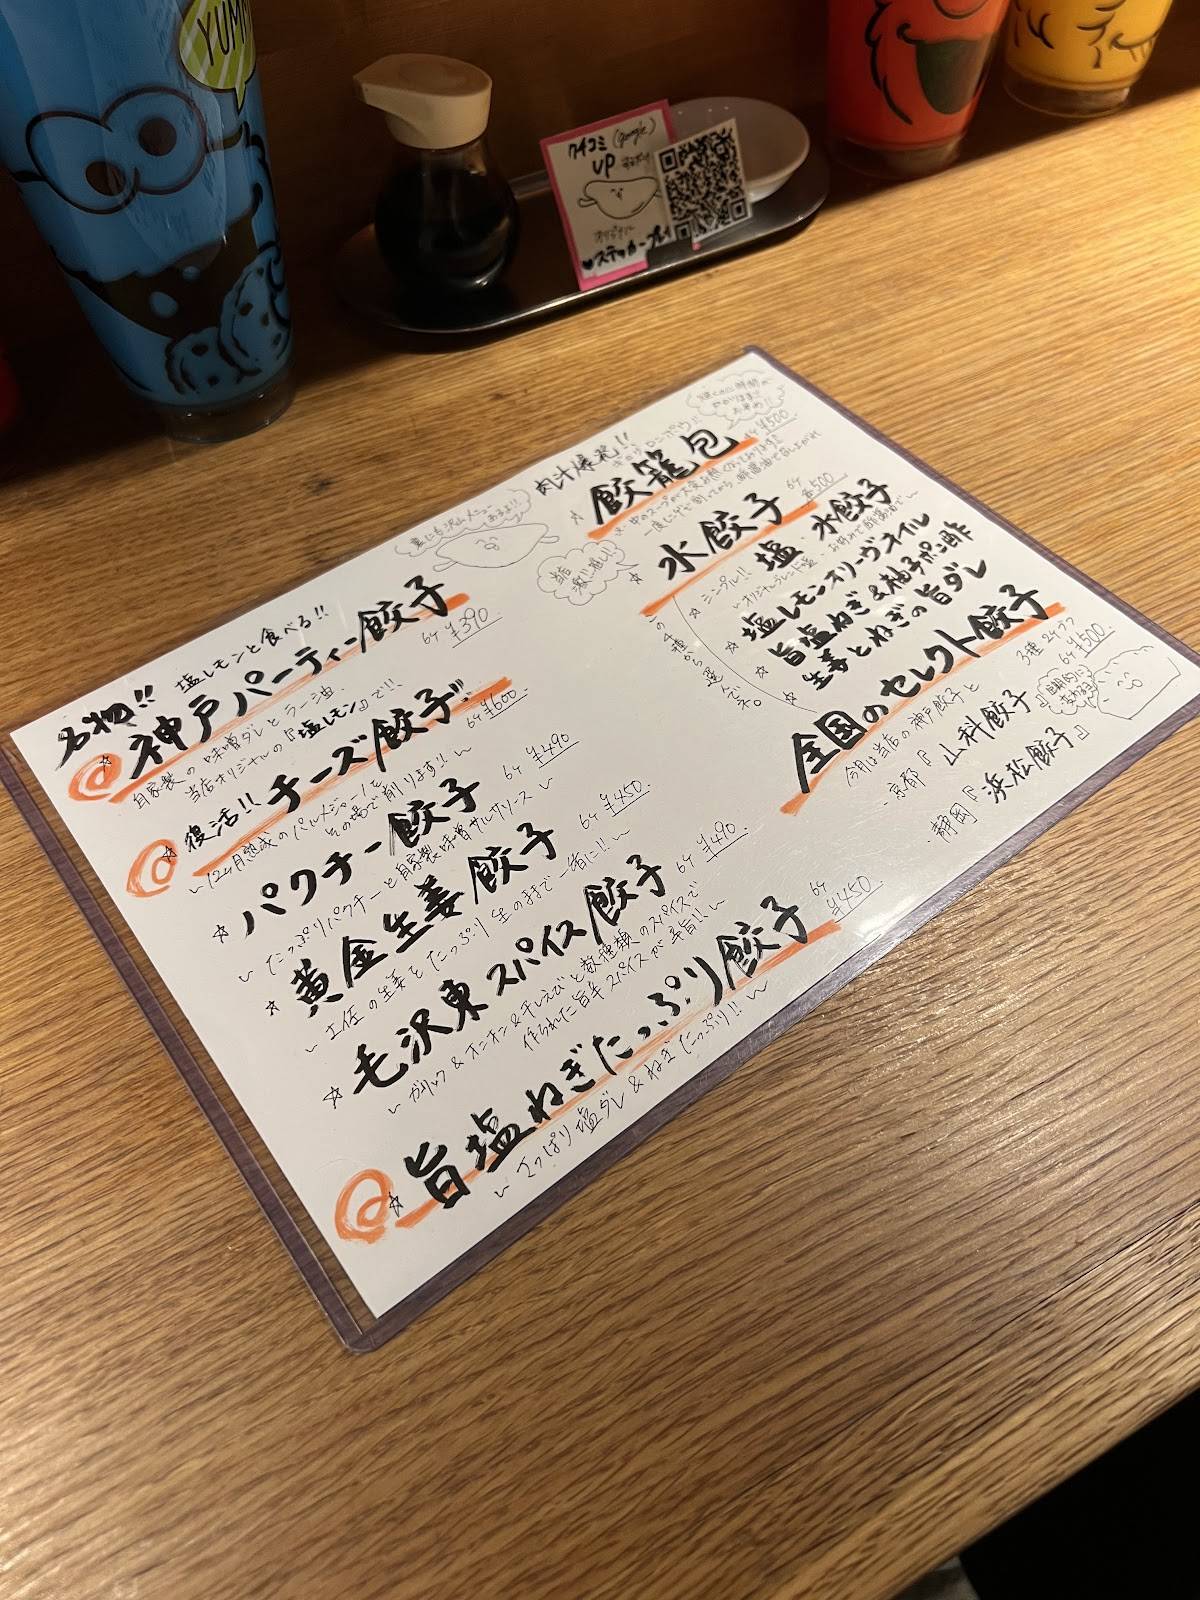 YUMM
クチコミ (google)
UP
オリジナル
♥ステッカープレ
裏にも沢山メニュー
あるよ!!
名物!! 塩レモンと食べる!!
☆神戸パーティー餃子 6ケ ¥390
自家製の味噌ダレとラー油、
当店オリジナルの『塩レモン』で!!
☆復活!! チーズ餃子!! 6ケ ¥600
〜12ヶ月熟成のパルメジャーノを
その場で削ります!!〜
☆パクチー餃子 6ケ ¥490
〜たっぷりパクチーと自家製味噌サルサソース〜
☆黄金生姜餃子 6ケ ¥450
〜土佐の生姜をたっぷり生のままで一緒に!!〜
☆毛沢東スパイス餃子 6ケ ¥490
〜ガリック&オニオン&干しえびと数種類のスパイスで
作られた旨辛スパイスが辛旨!!〜
☆旨塩ねぎたっぷり餃子 6ケ ¥450
〜さっぱり塩ダレ&ねぎたっぷり!!〜
肉汁爆発!!
ギョウロンポウ!!
☆餃籠包 ¥500
当店
激!!推し!!
☆水餃子 6ケ ¥500
☆シンプル!! 塩・水餃子
〜オリジナルブレンド塩・お好みで酢醤油で〜
☆塩レモンオリーヴオイル
☆旨塩ねぎ&柚子ポン酢
☆生姜とねぎの旨ダレ
この4種から選んでネ。
全国のセレクト餃子 3種 2ケヅツ
6ケ ¥500
今月は当店の神戸餃子と
・京都『山科餃子』
・静岡『浜松餃子』